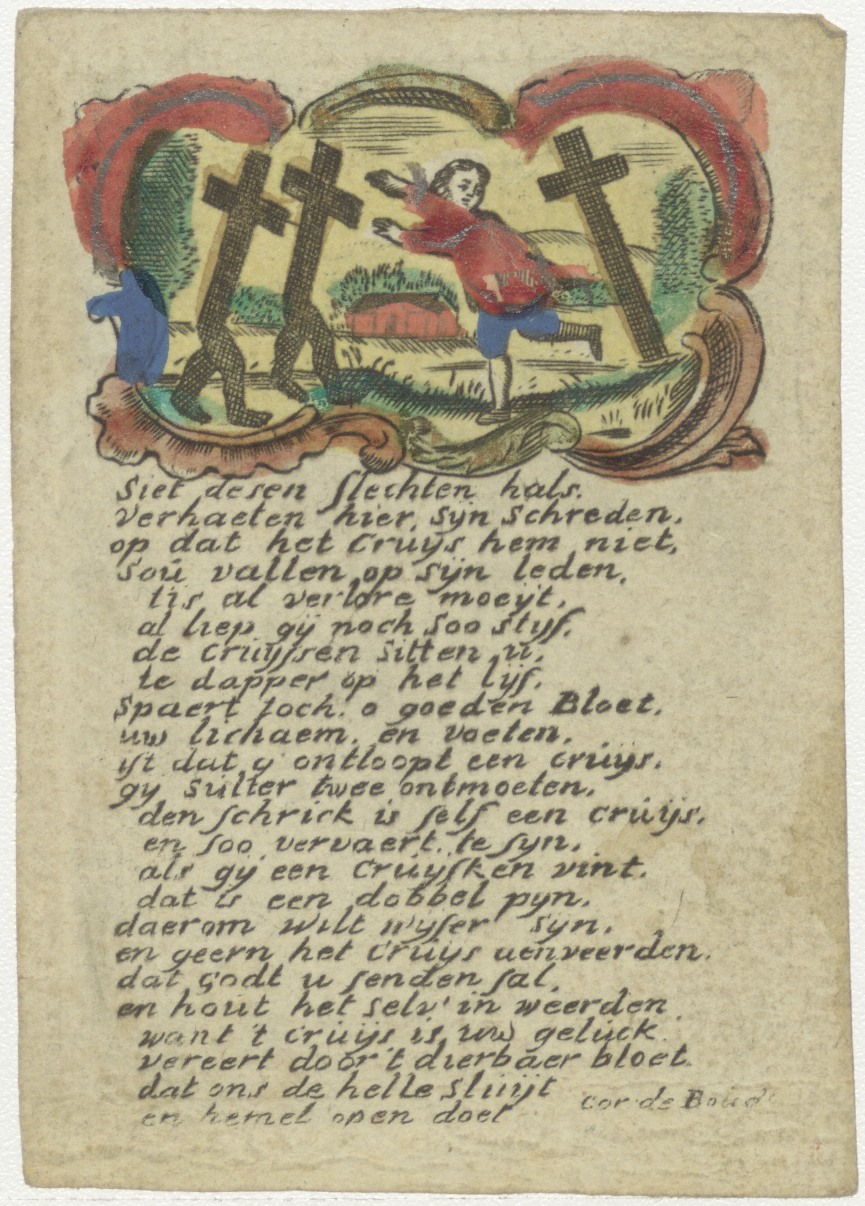 Siet desen slechten hals.
verhaeten hier, syn Schreden,
op dat het Cruÿs hem niet,
Soú vallen op sÿn leden,
tis al verlore moeÿt,
al liep gÿ noch Soo stÿf,
de Cruÿssen Sitten ú,
te dapper op het lÿf,
Spaert toch o goeden Bloet,
uw lichaem, en voeten,
ist dat g' ontloopt een cruÿs,
gÿ Sulter twee ontmoeten,
den schrick is self een cruÿs,
en soo vervaert te syn,
als gÿ een Cruÿsken vint.
dat is een dobbel pyn,
daerom wilt wyser Syn,
en geern het Cruÿs uenveerden.
dat godt u senden sal,
en hout het selv' in weerden
want 't Cruÿs is uw geluck
vereert door 't dierbaer bloet
dat ons de helle Sluÿt
en hemel open doet
cor de Boudt